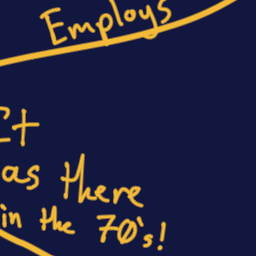 Employs
as there
in the 70's!